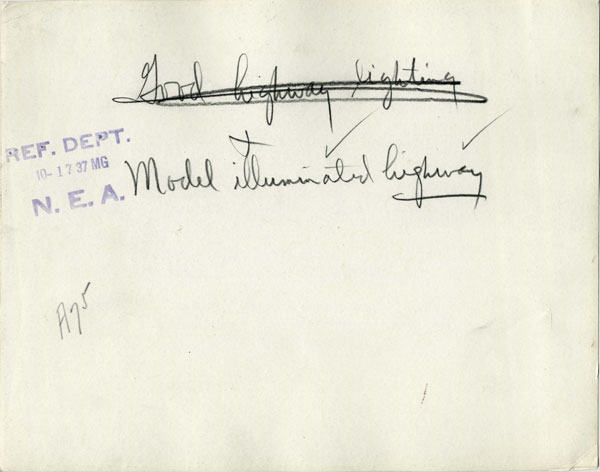 Good highway lighting
REF. DEPT.
10-17 37 MG
N. E. A.
Model illuminated highway
A75